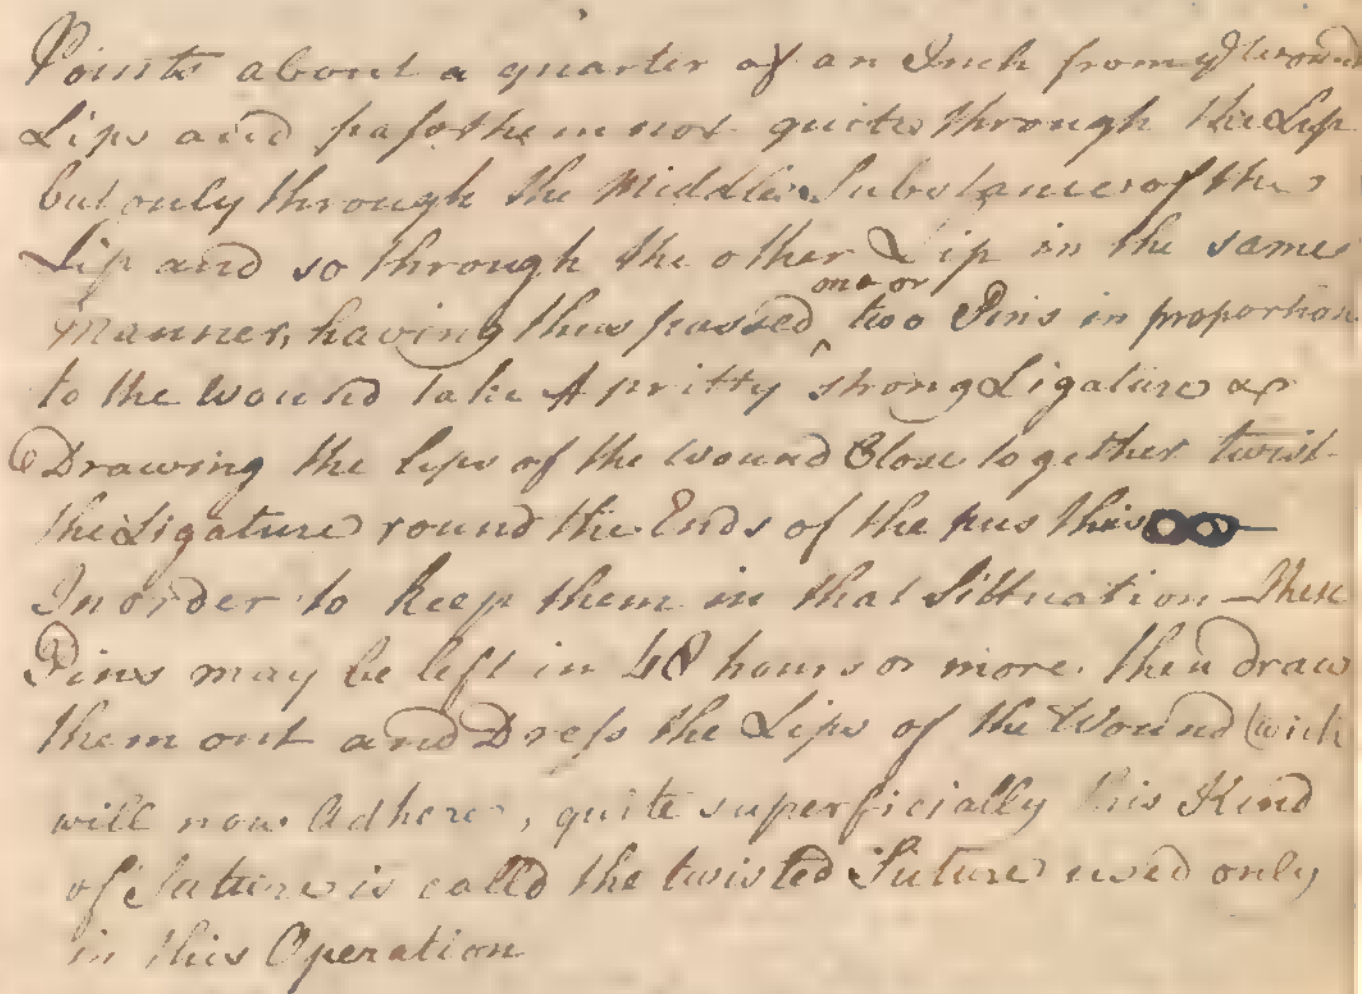 Points about a quarter of an Inch from ye wound
Lips and pass them not quite through the Lip
but only through the Middle Substance of the
Lip and so through the other Lip in the same
Manner, having thus passed ^one or two Pins in proportion
to the Wound take A pritty strong Ligature &
Drawing the lips of the Wound Close together twist
the Ligature round the Ends of the pins this
In order to keep them in that Sittuation These
Pins may be left in 48 hours or more. then draw
them out and Dress the Lips of the Wound (wich
will now Adhere, quite superficially this Kind
of Suture is calld the twisted Suture used only
in this Operation